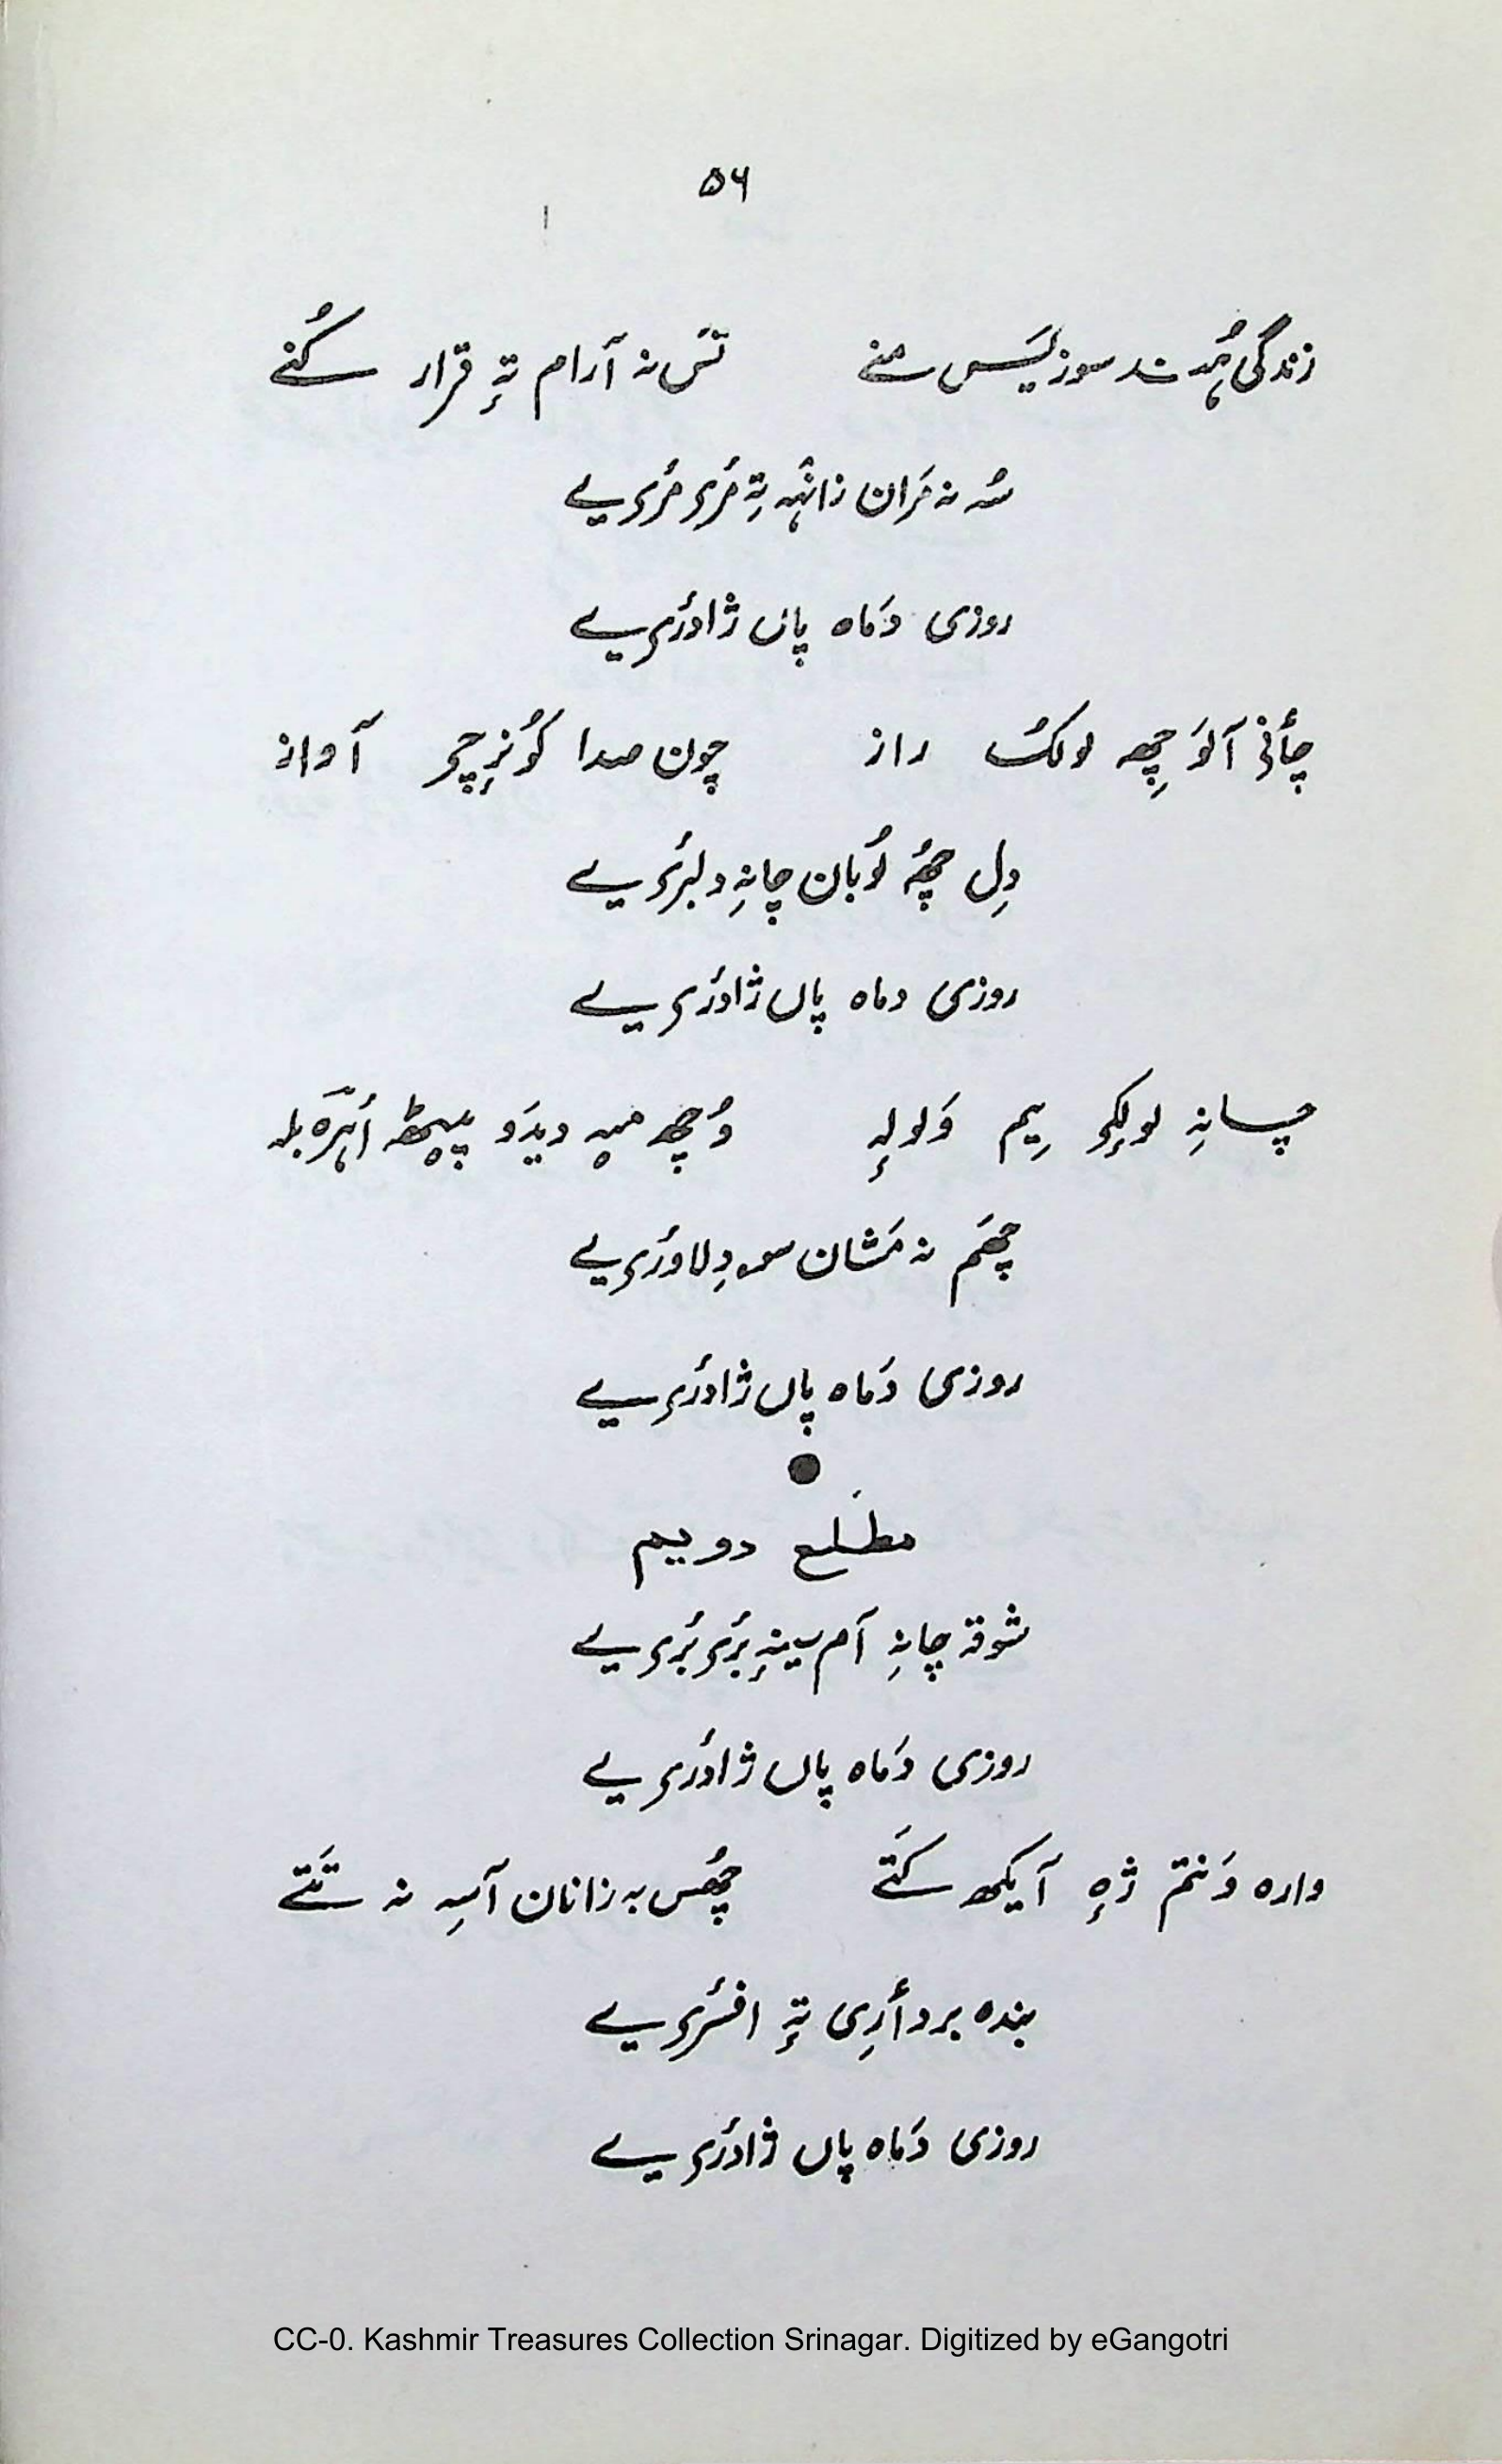 ۵۶
زندگی ہُند سوز یَس منے تَس نہ آرام تہٕ قرار کُنے
سُہ نہ مَران زانٛہہ تہِ مٔرۍ مٔرۍ یے
روزی دَماہ پاں ژادٔرۍ یے
چأنۍ آلَو چِھہ لولکُ راز چون صدا کوٚنزِچۍ آواز
دِل چھُہ لوٚبان چانہِ دلبرٔۍ یے
روزی دماہ پاں ژادٔرۍ یے
چانہِ لولِکۍ یِم وَلولہٕ وُچھ میہ دیدَو پیٹھہ أہرَہ بلہ
چھَم نہ مَشان سۄ دِلاورٔۍ یے
روزی دَماہ پاں ژادٔرۍ یے
مطلع دویم
شوقہ چانہِ آم سینہٕ بٔرۍ بٔرۍ یے
روزی دَماہ پاں ژادٔرۍ یے
وارہ وَنتم ژہٕ آیکھ کَتے چھُس بہ زانان آسہِ نہ تَتے
بندہ بردأرِی تہٕ افسٔرۍ یے
روزی دَماہ پاں ژادٔرۍ یے
CC-0. Kashmir Treasures Collection Srinagar. Digitized by eGangotri